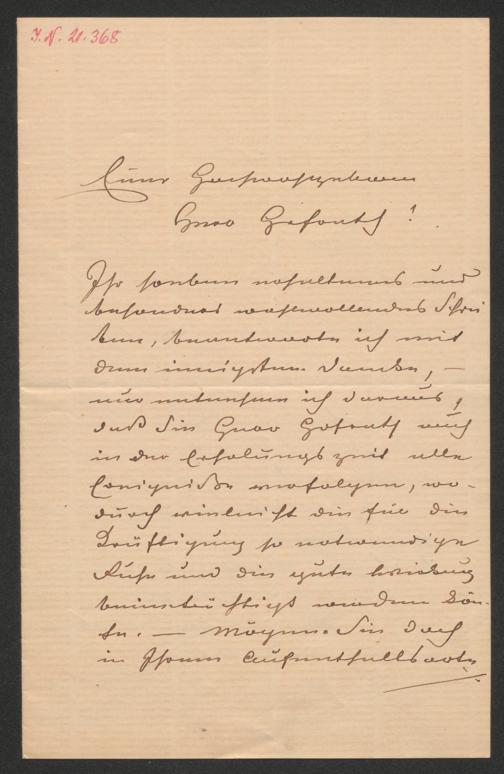 I.N. 21.368
Euer Hochwohlgeboren
Herr Hofrath!
Ihr soeben erhaltenes und
besonders wohlwollendes Schrei
ben, beantworte ich mit
dem innigsten Danke, —
nur entnehme ich daraus,
daß Sie Herr Hofrath auch
in der Erholungszeit alle
Ereigniße verfolgen, wo-
durch vielleicht die für die
Kräftigung so notwendige
Ruhe und die gute
beeinträchtigt werden kön-
te. — Mögen Sie doch
in Ihrem Aufenthaltsorte